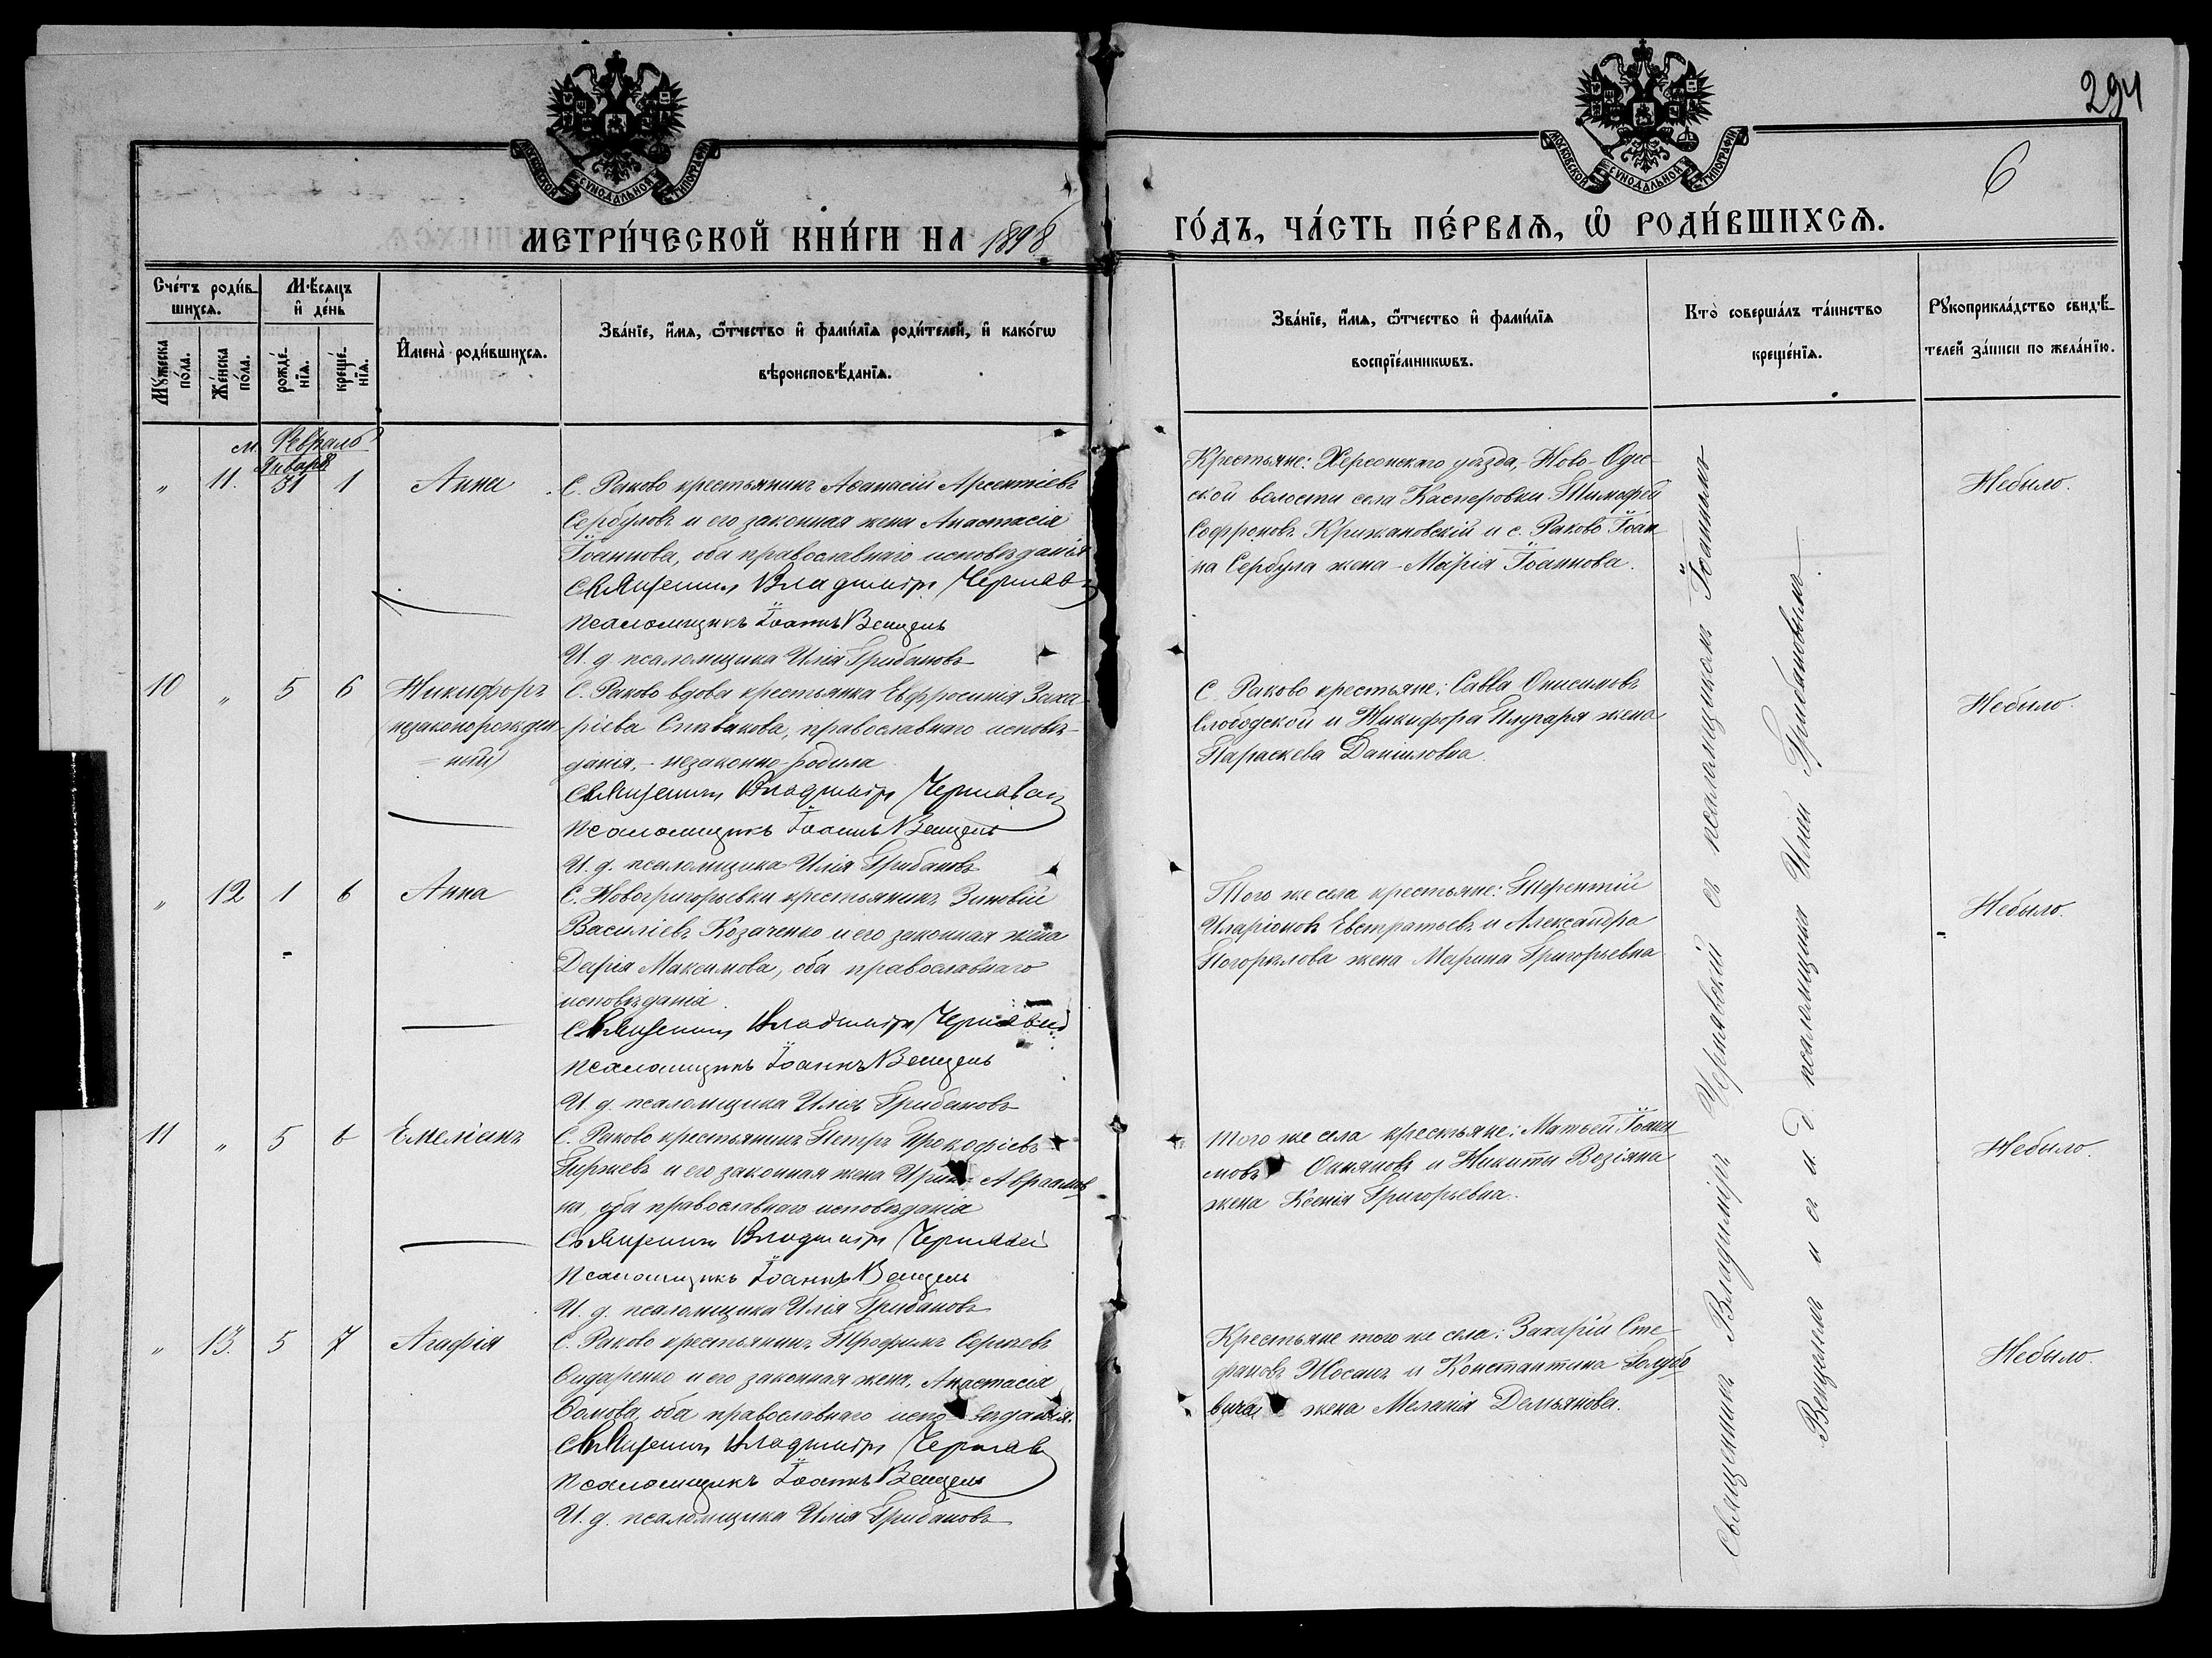 МОСКОВСКОЙ СУНОДАЛЬНОЙ ТИПОГРАФІИ
МОСКОВСКОЙ СУНОДАЛЬНОЙ ТИПОГРАФІИ
294
6
МЕТРИ́ЧЕСКОЙ КНИ́ГИ НА 1898
ГО́ДЪ, ЧА́СТЬ ПЕ́РВАЯ, Ѡ РОДИ́ВШИХСЯ.
Сче́тъ роди́в-
шихся.
Мꙋ́жеска по́ла.
Же́нска по́ла.
Мѣ́сяцъ
и҆ де́нь
рожде́-
нїя.
креще́-
нїя.
И҆мена̀ роди́вшихся.
Зва́нїе, и҆́мя, ѻ҆́тчество и҆ фами́лїя роди́телей, и҆ како́гѡ
вѣроисповѣ́данїя.
Зва́нїе, и҆́мя, ѻ҆́тчество и҆ фами́лїя
воспрїе́мникѡвъ.
Кто̀ соверша́лъ та́инство
креще́нїя.
Рꙋкоприкла́дство свидѣ́-
телей за́писи по жела́нїю.
м. Февраль
Января
" 11. 31 1 Анна
С. Раково крестьянинъ Аѳанасій Арсентіевъ
Сербуловъ и его законная жена Анастасія
Іоаннова, оба православнаго исповѣданія
Священникъ Владиміръ Чернявс
Псаломщикъ Іоаннъ Венцель
И. д. псаломщика Илія Грибановъ
Крестьяне: Херсонскаго уѣзда, Ново-Одес-
ской волости села Касперовки Тимофей
Софроновъ Крижановскій и с. Раково Іоан-
на Сербула жена Марія Іоаннова.
Небыло.
10 " 5 6 Никифоръ
(незаконорожден-
ный)
С. Раково вдова крестьянка Евфросинія Заха-
ріева Спивакова, православнаго исповѣ-
данія, - незаконно-родила
Священникъ Владиміръ Чернявск
Псаломщикъ Іоаннъ Венцель
И. д. псаломщика Илія Грибановъ
С. Раково крестьяне: Савва Онисимовъ
Слободской и Никифора Плугаря жена
Параскева Даніиловна.
Небыло.
" 12 1 6 Анна
С. Новогригорьевки крестьянинъ Зиновій
Василіевъ Козаченко и его законная жена
Дарія Максимова, оба православнаго
исповѣданія.
Священникъ Владиміръ Чернявскій
Псаломщикъ Іоаннъ Венцель
И. д. псаломщика Илія Грибановъ
Того же села крестьяне: Терентій
Иларіоновъ Евстратьевъ и Александра
Погорѣлова жена Марина Григорьевна
Небыло.
11 " 5 6 Емеліанъ
С. Раково крестьянинъ Петръ Прокофіевъ
и его законная жена Ирина Авраамов-
на, оба православнаго исповѣданія
Священникъ Владиміръ Чернявскі
Псаломщикъ Іоаннъ Венцель
И. д. псаломщика Илія Грибановъ
Того же села крестьяне: Матѳей Іоаки-
мовъ и Никиты Возіяна
жена Ксенія Григорьевна.
Небыло.
" 13. 5 7 Агафія
С. Раково крестьянинъ Трофимъ Сергѣевъ
Сидаренко и его законная жена, Анастасія
Ѳомова, оба православнаго исповѣданія.
Священникъ Владиміръ Чернявс
Псаломщикъ Іоаннъ Венцель
И. д. псаломщика Илія Грибановъ
Крестьяне того же села: Захарій Сте-
фановъ Жосанъ и Константина Голубо-
вича жена Меланія Демьянова.
Небыло.
Священникъ Владиміръ Чернявскій съ псаломщикомъ Іоанномъ
Венцелемъ и съ и. д. псаломщика Иліи Грибановымъ.